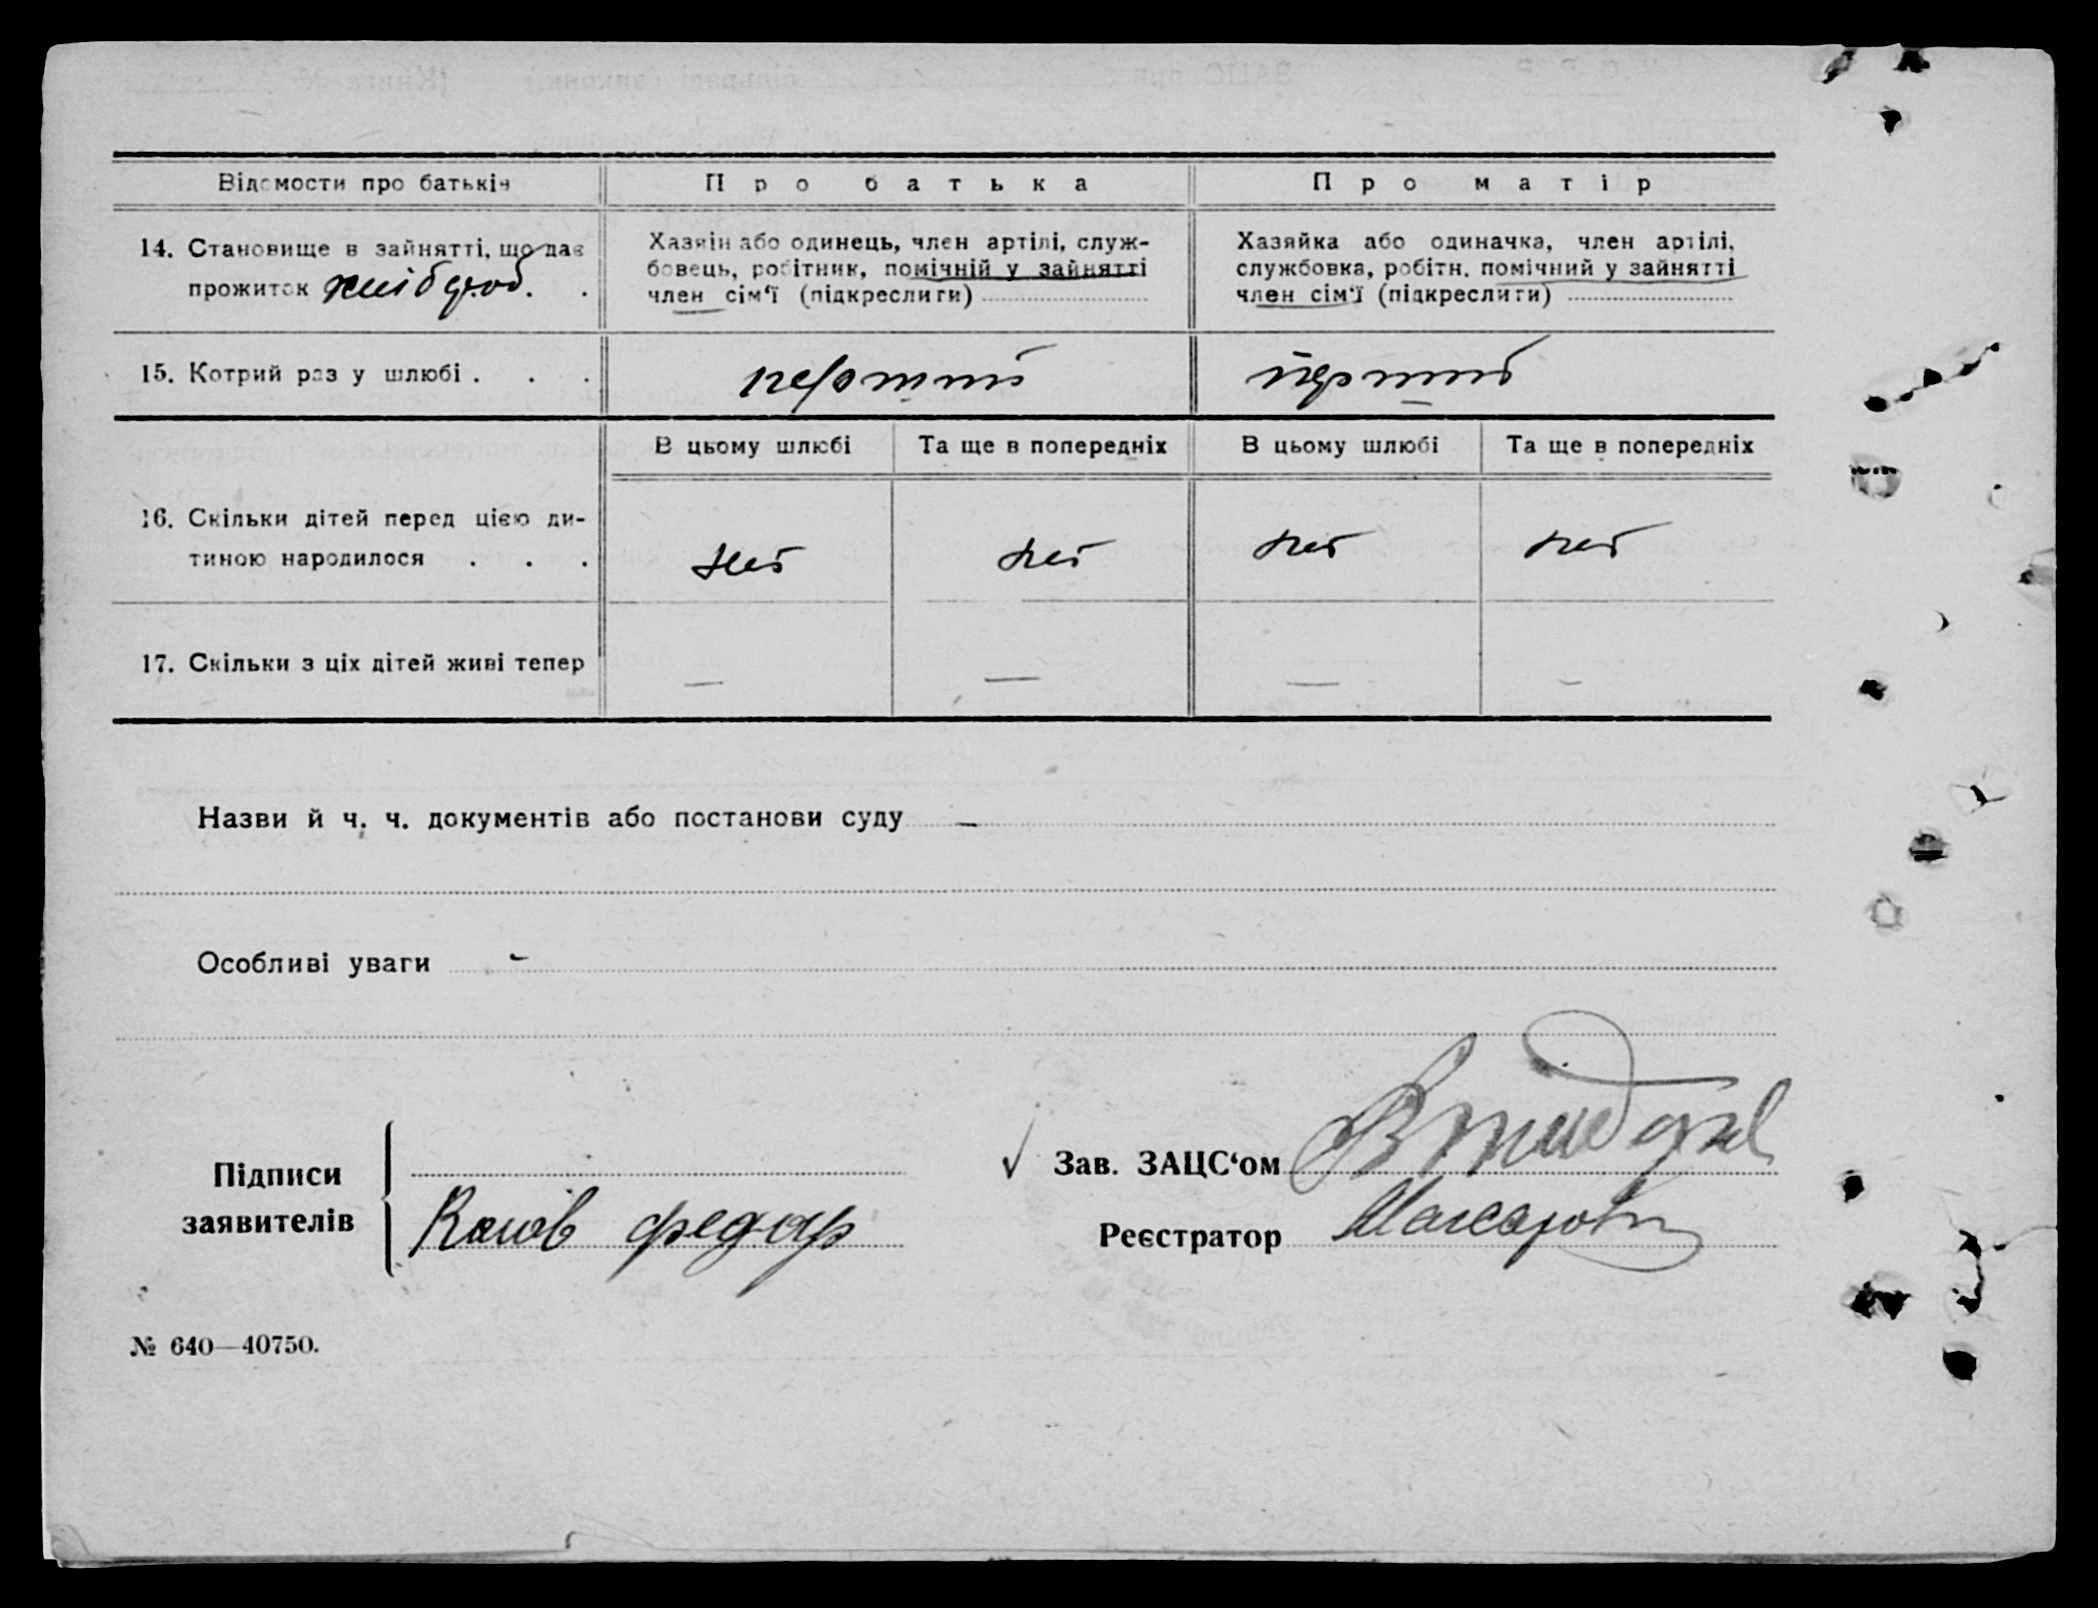 Відомости про батьків
П р о б а т ь к а
П р о м а т і р
14. Становище в зайнятті, що дає
прожиток хлібороб. .
Хазяїн або одинець, член артілі, служ-
бовець, робітник, помічній у зайнятті
член сім‘ї (підкреслити)
Хазяйка або одиначка, член артілі,
службовка, робітн. помічний у зайнятті
член сім‘ї (підкреслити)
15. Котрий раз у шлюбі . . .
перший
перший
В цьому шлюбі
Та ще в попередніх
В цьому шлюбі
Та ще в попередніх
16. Скільки дітей перед цією ди-
тиною народилося . . .
ні
ні
ні
ні
17. Скільки з ціх дітей живі тепер
—
—
—
—
Назви й ч. ч. документів або постанови суду —
Особливі уваги -
Підписи
заявителів
федор
Зав. ЗАЦС‘ом
Реєстратор
№ 640—40750.